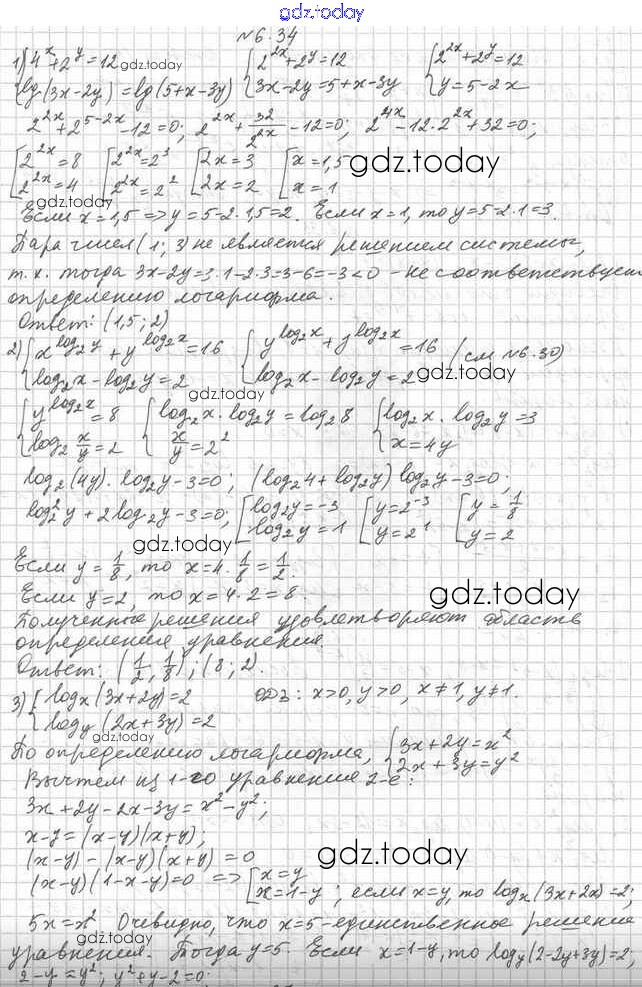 gdz.today
№6.34
1) { 4^x + 2^y = 12 gdz.today { 2^{2x} + 2^y = 12 { 2^{2x} + 2^y = 12
lg(3x-2y) = lg(5+x-3y) 3x-2y=5+x-3y y=5-2x
2^{2x} + 2^{5-2x} - 12 = 0; 2^{2x} + 32/2^{2x} - 12 = 0; 2^{4x} - 12·2^{2x} + 32 = 0;
[ 2^{2x} = 8 [ 2^{2x} = 2^3 [ 2x = 3 [ x = 1,5 gdz.today
2^{2x} = 4 2^{2x} = 2^2 2x = 2 x = 1
gdz.today
Если x = 1,5 => y = 5-2·1,5=2. Если x=1, то y=5-2·1=3.
Пара чисел (1; 3) не является решением системы,
т.к. тогда 3x-2y=3·1-2·3=3-6=-3<0 - не соответствует
определению логарифма.
Ответ: (1,5; 2)
2) { x^{log_2 y} + y^{log_2 x} = 16 { y^{log_2 x} + y^{log_2 x} = 16 (см №6.30)
log_2 x - log_2 y = 2 log_2 x - log_2 y = 2 gdz.today
gdz.today
{ y^{log_2 x} = 8 { log_2 x · log_2 y = log_2 8 { log_2 x · log_2 y = 3
log_2 x/y = 2 x/y = 2^2 x = 4y
log_2 (4y) · log_2 y - 3 = 0; (log_2 4 + log_2 y) log_2 y - 3 = 0;
log_2^2 y + 2 log_2 y - 3 = 0; [ log_2 y = -3 [ y = 2^{-3} [ y = 1/8
log_2 y = 1 y = 2^1 y = 2
gdz.today
Если y = 1/8, то x = 4 · 1/8 = 1/2.
Если y = 2, то x = 4 · 2 = 8. gdz.today
Полученные решения удовлетворяют область
определения уравнения.
Ответ: (1/2, 1/8); (8; 2).
3) { log_x (3x+2y) = 2 ОДЗ: x>0, y>0, x≠1, y≠1.
log_y (2x+3y) = 2
По определению логарифма, { 3x+2y = x^2
2x+3y = y^2
Вычтем из 1-го уравнения 2-е:
3x+2y-2x-3y = x^2 - y^2;
x-y = (x-y)(x+y);
(x-y) - (x-y)(x+y) = 0 gdz.today
(x-y)(1-x-y)=0 => [ x=y
x=1-y ; если x=y, то log_x (3x+2x) = 2;
5x=x^2 Очевидно, что x=5 - единственное решение
gdz.today
уравнения. Тогда y=5. Если x=1-y, то log_y (2-2y+3y) = 2;
2-y = y^2; y^2+y-2=0;